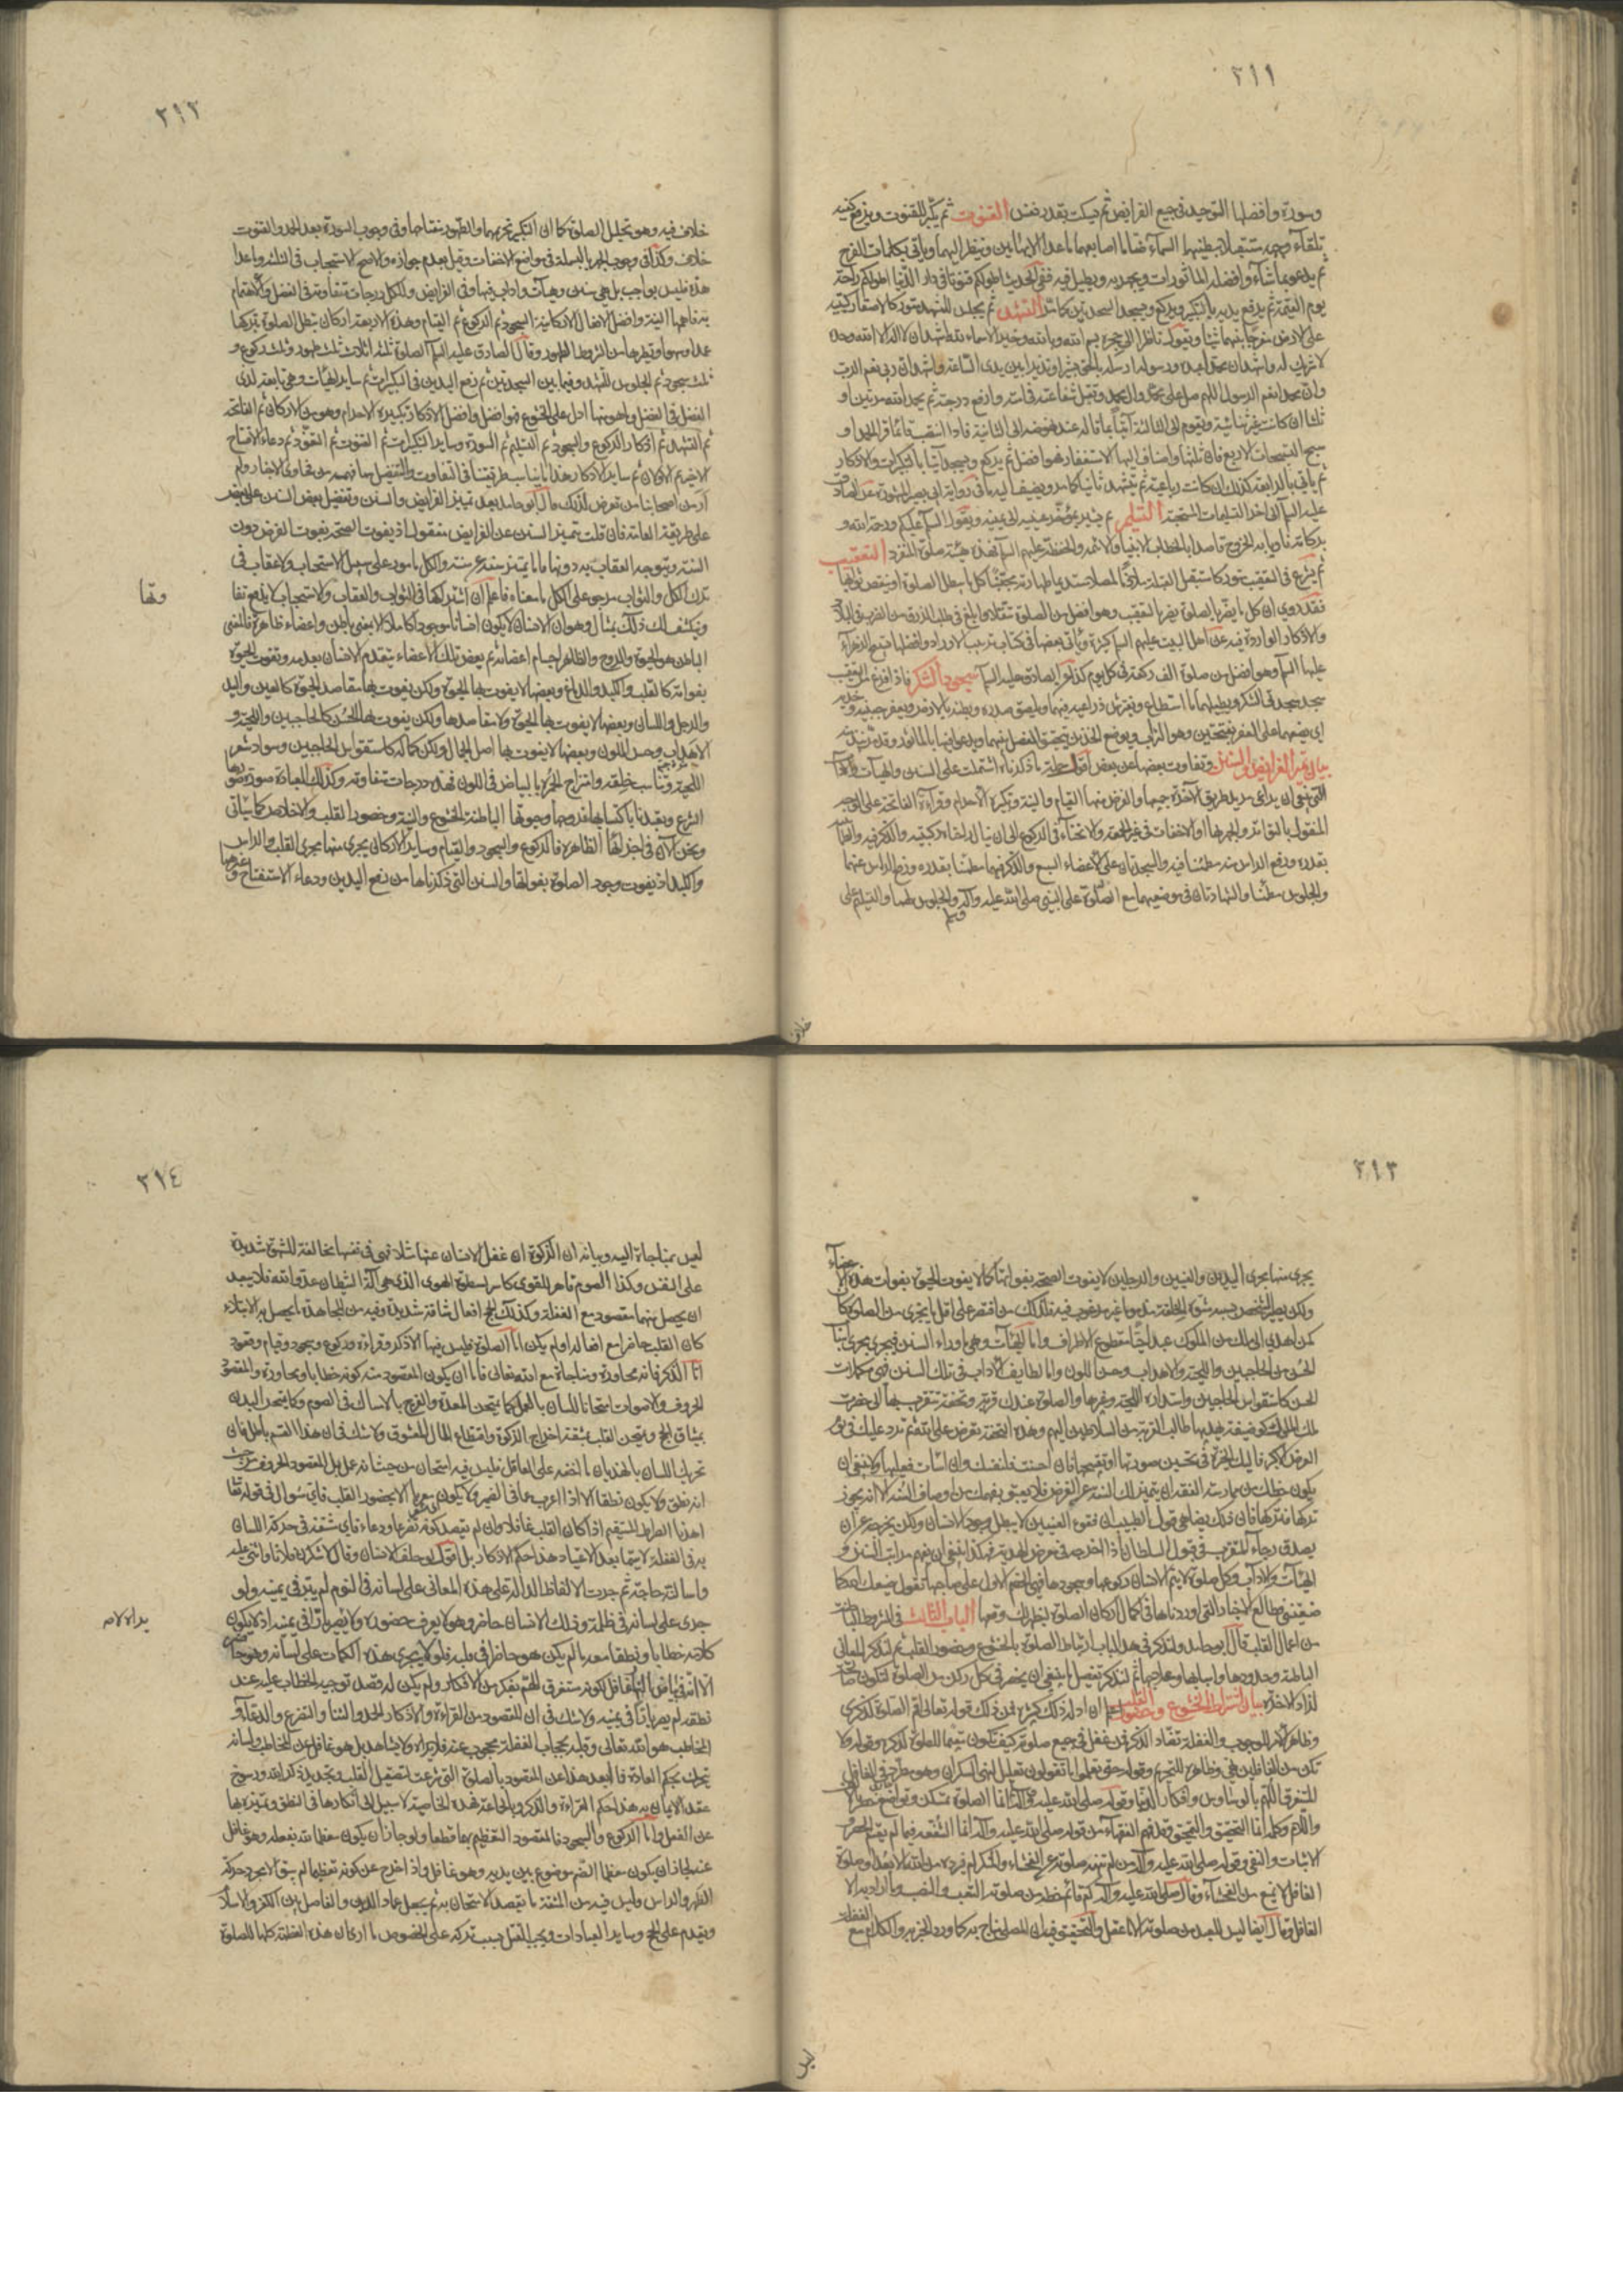 ٣١١
وسورة وافضلها التوحيد في جميع الفرايض ثم يسكت بقدر نفس القنوت ثم يكبّر للقنوت ويرفع كفيه
تلقاء وجهه مستقبلا ببطنيهما السماء ضاما اصابعهما ما عدا الابهامين وينظر اليهما ويأتي بكلمات الفرج
ثم يدعو بما شاء وافضله الماثورات ويجهر به ويطيل فيه ففي الحديث اطولكم قنوتا في دار الدنيا اطولكم راحة
يوم القيمة ثم يرفع يديه بالتكبير ويركع ويسجد السجدتين كما مر التشهد ثم يجلس للتشهد متوركا
على الارض ويقول ناظرا الى حجره بسم الله وبالله وخير الاسماء لله اشهد ان لا اله الا الله وحده
لا شريك له واشهد ان محمدا عبده ورسوله ارسله بالحق بشيرا ونذيرا بين يدي الساعة واشهد ان ربي نعم الرب
وان محمدا نعم الرسول اللهم صل على محمد وال محمد وتقبل شفاعته في امته وارفع درجته ثم يحمد الله مرتين او
ثلثا ان كانت غير ثنائية ويقوم الى الثالثة آتيا بما قاله عند نهوضه الى الثانية فاذا انتصب قائما قرأ الحمد او
سبح التسبيحات الاربع فان ثلثها واضاف اليها الاستغفار فهو افضل ثم يركع ويسجد آتيا بالتكبيرات والاذكار
ثم يأتي بالرابعة كذلك ان كانت رباعية ثم يتشهد ثانيا كما مر ويضيف اليه ما في رواية ابي بصير المشهورة عن الصادق
عليه السلم الى اخر التسليمات المستحبة التسليم ثم يشير بمؤخر عينيه الى يمينه ويقول السلم عليكم ورحمة الله و
بركاته ناويا به الخروج قاصدا بالخطاب الانبياء والائمة والحفظة عليهم السلم فهذه هيئة صلوة المنفرد التعقيب
ثم يشرع في التعقيب متوركا مستقبل القبلة ملازما لمصلاه مستديما طهارته مجتنبا كل ما يبطل الصلوة او ينقص ثوابها
فقد روي ان كل ما يضر بالصلوة يضر بالتعقيب وهو افضل من الصلوة تنفلا وابلغ في طلب الرزق من الضرب في البلاد
والاذكار الواردة فيه عن اهل البيت عليهم السلم كثيرة ويأتي بعضها في كتاب ترتيب الاوراد وافضلها تسبيح الزهراء
عليها السلم وهو افضل من صلوة الف ركعة في كل يوم كذا قال الصادق عليه السلم سجود الشكر فاذا فرغ من التعقيب
سجد سجدتي الشكر ويطيلهما ما استطاع ويفترش ذراعيه فيهما ويلصق صدره وبطنه بالارض ويعفر جبينيه وخديه
اي يضعهما على العفر بفتحتين وهو التراب ويدعو فيها بالماثور
بيان تميز الفرايض والسنن وتفاوت بعضها عن بعض اقول جملة ما ذكرناه اشتملت على السنن والهيآت والآداب
التي ينبغي ان يراعي مريد طريق الآخرة جميعها والفرض منها القيام والنية وتكبيرة الاحرام وقراءة الفاتحة على الوجه
المنقول بالتواتر والجهر بها او الاخفات في غير الجمعة والانحناء في الركوع الى ان ينال راحتاه ركبتيه والذكر فيه والطمأنينة
بقدره ورفع الراس منه مطمئنا فيه والسجدتان على الاعضاء السبع والذكر فيهما مطمئنا بقدره ورفع الراس عنهما
والجلوس مطمئنا والشهادتان في موضعيهما مع الصلوة على النبي صلى الله عليه وآله وسلم والجلوس لهما والتسليم على
خلاف
٣١٢
خلاف فيه وهو تحليل الصلوة كما ان التكبير تحريمها والطهور مفتاحها وفي وجوب السورة بعد الحمد والقنوت
خلاف وكذا في وجوب الجهر بالبسملة في مواضع الاخفات وقيل بعدم جوازه والاصح الاستحباب في الثلثة وما عدا
هذه فليس بواجب بل هي سنن وهيآت وآداب فيها وفي الفرايض ولكل درجات متفاوتة في الفضل والاهتمام
به فاهمها النية وافضل الافعال الاركانية السجود ثم الركوع ثم القيام وهذه الاربعة اركان تبطل الصلوة بتركها
عمدا وسهوا ونظيرها من الشروط الطهور وقال الصادق عليه السلم الصلوة ثلثة اثلاث ثلث طهور وثلث ركوع و
ثلث سجود ثم الجلوس للتشهد وفيما بين السجدتين ثم رفع اليدين في التكبيرات ثم ساير الهيآت وهي تابعة لذي
الفضل في الفضل وما هو منها ادل على الخشوع فهو افضل وافضل الاذكار تكبيرة الاحرام وهو من الاركان ثم الفاتحة
ثم التشهد ثم اذكار الركوع والسجود ثم التسليم ثم السورة وساير التكبيرات ثم القنوت ثم التعوذ ثم دعاء الافتتاح
الاخير ثم الاذان ثم ساير الاذكار هذا ما يناسب طريقتنا في التفاوت والتفضيل مما فهمه من فحاوى الاخبار ولم
ار من اصحابنا من تعرض لذلك قال ابو حامد بعد تميز الفرايض والسنن وتفضيل بعض السنن على بعض
على طريقة العامة فان قلت تميز السنن عن الفرايض معقول اذ يفوت الصحة بفوت الفرض دون
السنة ويتوجه العقاب به دونها فاما يتميز سنة عن سنة والكل مامور على سبيل الاستحباب ولا عقاب في
ترك الكل والثواب مرجو على الكل فما معناه فاعلم ان اشتراكها في الثواب والعقاب والاستحباب لا يدفع تفا
وتها
ونكشف لك ذلك بمثال وهو ان الانسان لا يكون انسانا موجودا كاملا الا بمعنى باطن واعضاء ظاهرة فالمعنى
الباطن هو الحيوة والروح والظاهر اجسام اعضائه ثم بعض تلك الاعضاء ينعدم الانسان بعدمه وتفوت الحيوة
بفواته كالقلب والكبد والدماغ وبعضها لا يفوت بها الحيوة ولكن يفوت بها مقاصد الحيوة كالعين واليد
والرجل واللسان وبعضها لا يفوت بها الحيوة ولا مقاصدها ولكن يفوت بها الحسن كالحاجبين واللحية و
الاهداب وحسن اللون وبعضها لا يفوت بها اصل الجمال ولكن كماله كاستقواس الحاجبين وسواد شعر
اللحية وتناسب خلقه وامتزاج الحمرة بالبياض في اللون فهذه درجات متفاوتة وكذلك العبادة صورة صورها
الشرع وتعبدنا باكتسابها فروحها وحيوتها الباطنة الخشوع والنية وحضور القلب والاخلاص كما سيأتي
ونحن الآن في اجزائها الظاهرة فالركوع والسجود والقيام وساير الاركان يجري منها مجرى القلب والراس
والكبد اذ يفوت وجود الصلوة بفواتها والسنن التي ذكرناها من رفع اليدين ودعاء الاستفتاح وغيرهما
٣١٣
يجري منها مجرى اليدين والعينين والرجلين لا يفوت الصحة بفواتها كما لا يفوت الحيوة بفوات هذه الاعضاء
ولكن يصير الشخص بسببه مشوه الخلقة مذموما غير مرغوب فيه فكذلك من اقتصر على اقل ما يجزي من الصلوة كان
كمن اهدى الى ملك من الملوك عبدا حيا مقطوع الاطراف واما الهيآت وهي ما وراء السنن فيجري مجرى اسباب
الحسن من الحاجبين واللحية والاهداب وحسن اللون واما لطايف الآداب في تلك السنن فهي مكملات
الحسن كاستقواس الحاجبين واستدارة اللحية وغيرها والصلوة عندك قربة وتحفة تتقرب بها الى حضرة
ملك الملوك كوصيفة يهديها طالب القربة من السلاطين اليهم وهذه التحفة تعرض على الله ثم ترد عليك في يوم
العرض الاكبر فاليك الخيرة في تحسين صورتها او تقبيحها فان احسنت فلنفسك وان اسأت فعليها ولا ينبغي ان
يكون حظك من ممارسة الفقه ان يتميز لك السنة عن الفرض فلا يعلق بفهمك من اوصاف السنة الا انه يجوز
تركها فتتركها فان ذلك يضاهي قول الطبيب ان فقوء العينين لا يبطل وجود الانسان ولكن يخرجه عن ان
يصدق رجاء المتقرب في قبول السلطان اذا اخرجه في معرض الهدية فهكذا ينبغي ان يفهم مراتب السنن و
الهيآت والآداب وكل صلوة لا يتم الانسان ركوعها وسجودها فهي الخصم الاول على صاحبها تقول ضيعك الله كما
ضيعتني فطالع الاخبار التي اوردناها في كمال اركان الصلوة ليظهر لك وقعها الباب الثالث في الشروط الباطنة
من اعمال القلب قال ابو حامد ولنذكر في هذا الباب ارتباط الصلوة بالخشوع وحضور القلب ثم لنذكر المعاني
الباطنة وحدودها واسبابها وعلاجها ثم لنذكر تفصيل ما ينبغي ان يحضر في كل ركن من الصلوة لتكون صالحة
لزاد الاخرة بيان اشتراط الخشوع وحضور القلب اعلم ان ادلة ذلك كثيرة فمن ذلك قوله تعالى اقم الصلوة لذكري
وظاهر الامر الوجوب والغفلة تضاد الذكر فمن غفل في جميع صلوته كيف يكون مقيما للصلوة لذكره وقوله ولا
تكن من الغافلين نهي وظاهره للتحريم وقوله حتى تعلموا ما تقولون تعليل لنهي السكران وهو مطرد في الغافل
المستغرق الهم بالوسواس وافكار الدنيا وقوله صلى الله عليه وآله انما الصلوة تمسكن وتواضع حصر بالالف
واللام وكلمة انما للتحقيق والتحقيق وقد فهم الفقهاء من قوله صلى الله عليه وآله انما الشفعة فيما لم يقسم الحصر و
الاثبات والنفي وقوله صلى الله عليه وآله من لم تنهه صلوته عن الفحشاء والمنكر لم يزدد من الله الا بعدا وصلوة
الغافل لا تمنع من الفحشاء وقال صلى الله عليه وآله كم من قائم حظه من صلوته التعب والنصب وما اراد به الا
الغافل وقال ايضا ليس للعبد من صلوته الا ما عقل والتحقيق فيه ان المصلي مناج ربه كما ورد الخبر به والكلام مع الغفلة
ليس
٣١٤
ليس بمناجاة البتة وبيانه ان الزكوة ان غفل الانسان عنها مثلا فهي في نفسها مخالفة للشهوة شديدة
على النفس وكذا الصوم قاهر للقوى كاسر لسطوة الهوى الذي هي آلة الشيطان عدو الله فلا يبعد
ان يحصل منهما مقصود مع الغفلة وكذلك الحج افعال شاقة شديدة وفيه من المجاهدة ما يحصل به الابتلاء
كان القلب حاضرا مع افعاله او لم يكن اما الصلوة فليس فيها الا ذكر وقراءة وركوع وسجود وقيام وقعود
اما الذكر فانه محاورة ومناجاة مع الله تعالى فاما ان يكون المقصود منه كونه خطابا ومحاورة والمقصود
الحروف والاصوات امتحانا للسان بالعمل كما يمتحن المعدة والفرج بالامساك في الصوم وكما يمتحن البدن
بمشاق الحج ويمتحن القلب بمشقة اخراج الزكوة واقتطاع المال المعشوق ولا شك في ان هذا القسم باطل فان
تحريك اللسان بالهذيان ما اخفه على الغافل فليس فيه امتحان من حيث انه عمل بل المقصود الحروف من حيث
انه نطق ولا يكون نطقا الا اذا اعرب عما في الضمير ولا يكون معربا الا بحضور القلب فاي سؤال في قوله تعالى
اهدنا الصراط المستقيم اذا كان القلب غافلا وان لم يقصد كونه تضرعا ودعاء فاي مشقة في حركة اللسان
به في الغفلة لا سيما بعد الاعتياد هذا حكم الاذكار بل اقول لو حلف الانسان وقال لاشكرن فلانا واثني عليه
واسأله حاجة ثم جرت الالفاظ الدالة على هذه المعاني على لسانه في النوم لم يبر في يمينه ولو
جرى على لسانه في ظلمة وذلك الانسان حاضر وهو لا يعرف حضوره ولا يصير بارا في يمينه اذ لا يكون
كلامه خطابا ونطقا معه ما لم يكن هو حاضرا في قلبه فلو لا يجري هذه الكلمات على لسانه وهو حاضر
الا انه في بياض النهار غافل لكونه مستغرق الهم بفكر من الافكار ولم يكن له قصد توجيه الخطاب عليه عند
نطقه لم يصر بارا في يمينه ولا شك في ان المقصود من القراءة والاذكار الحمد والثناء والتضرع والدعاء و
المخاطب هو الله تعالى وقلبه بحجاب الغفلة محجوب عنه فلا يراه ولا يشاهده بل هو غافل عن المخاطب ولسانه
يتحرك بحكم العادة فما ابعد هذا عن المقصود بالصلوة التي شرعت لتصقيل القلب وتجديد ذكر الله ورسوخ
عقد الايمان به هذا حكم القراءة والذكر وبالجملة فهذه الخاصية لا سبيل الى انكارها في النطق وتميزه بها
عن الفعل واما الركوع والسجود فالمقصود التعظيم بهما قطعا ولو جاز ان يكون معظما لله بفعله وهو غافل
عنه لجاز ان يكون معظما لصنم موضوع بين يديه وهو غافل واذا خرج عن كونه تعظيما لم يبق الا مجرد حركة
الظهر والراس وليس فيه من المشقة ما يقصد الامتحان به ثم يجعل عماد الدين والفاصل بين الكفر والاسلام
ويقدم على الحج وساير العبادات ويجب القتل بسبب تركه على الخصوص ما ارى ان هذه العظمة كلها للصلوة